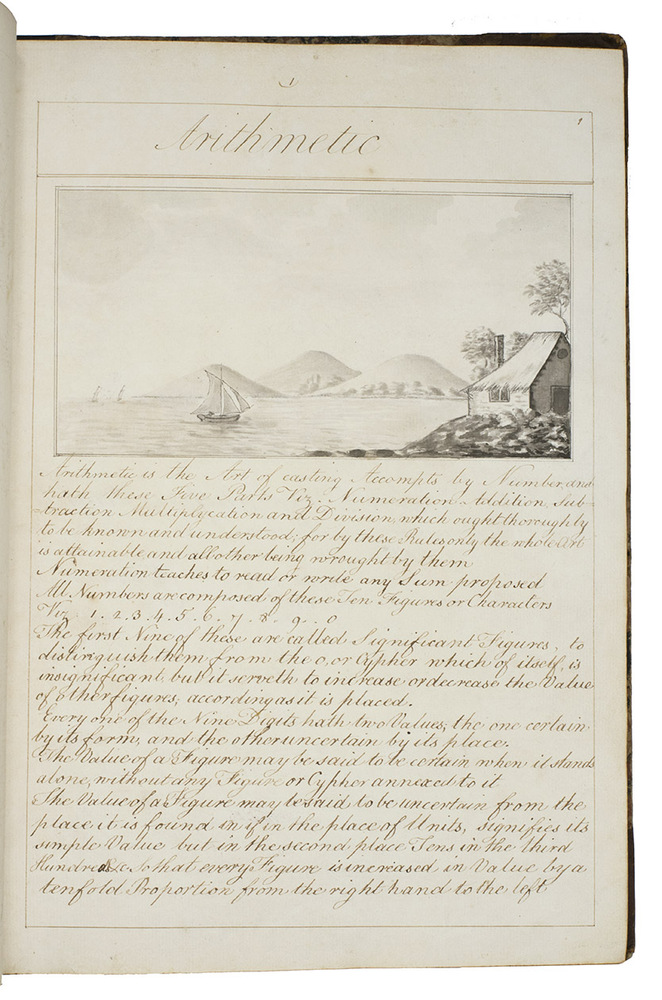 1
1
Arithmetic
Arithmetic is the Art of casting Accompts by Number, and
hath these Five Parts Viz. Numeration Addition, Sub=
=traction Multiplycation and Division, which ought thoroughly
to be known and understood; for by these Rules only the whole Art
is attainable and all other being wrought by them
Numeration teaches to read or write any Sum proposed
All Numbers are composed of these Ten Figures or Characters
Viz. 1. 2. 3. 4. 5. 6. 7. 8. 9. 0
The first Nine of these are called Significant Figures, to
distinguish them from the 0, or Cypher which of itself, is
insignificant but it serveth to increase or decrease the Value
of other figures, according as it is placed.
Every one of the Nine Digits hath two Values; the one certain
by its form, and the other uncertain by its place.
The Value of a Figure may be said to be certain when it stands
alone, without any Figure or Cypher annexed to it
The Value of a Figure may be said to be uncertain from the
place it is found in if in the place of Units, signifies its
simple Value but in the second place Tens in the third
Hundred &c So that every Figure is increased in Value by a
tenfold Proportion from the right hand to the left